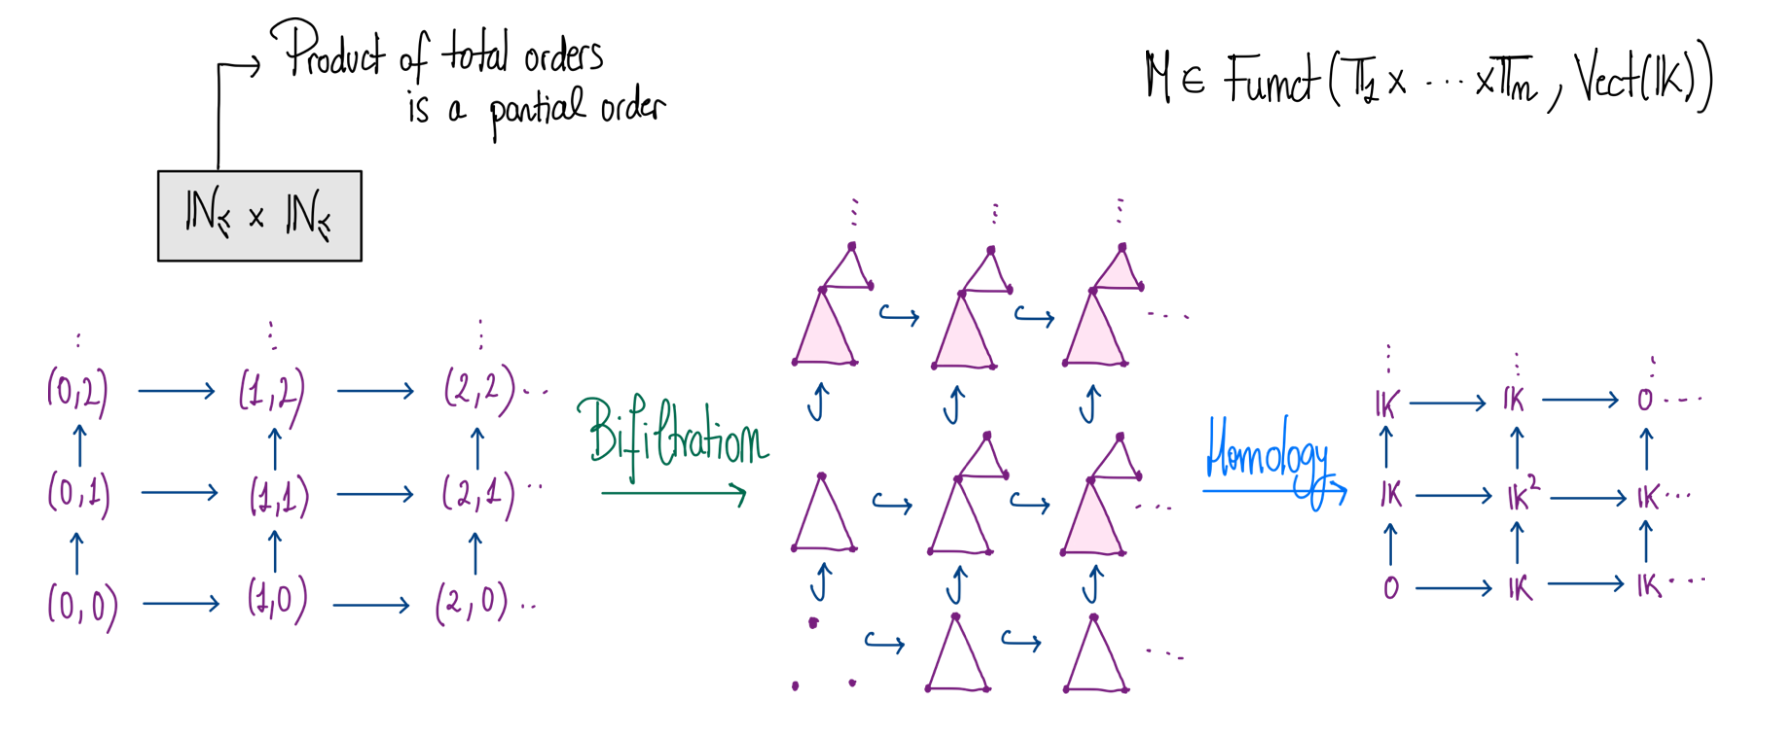 Product of total orders
is a partial order
M ∈ Funct(𝕋₁ × ··· × 𝕋ₙ, Vect(𝕂))
ℕ≤ × ℕ≤
⋮ ⋮ ⋮
(0,2) → (1,2) → (2,2) ···
↑ ↑ ↑
(0,1) → (1,1) → (2,1) ··
↑ ↑ ↑
(0,0) → (1,0) → (2,0) ··
Bifiltration
⋮ ⋮ ⋮
↪ ↪ ····
↪ ↪ ···
↪ ↪ ····
Homology
⋮ ⋮ ⋮
𝕂 → 𝕂 → 0 ···
↑ ↑ ↑
𝕂 → 𝕂² → 𝕂 ···
↑ ↑ ↑
0 → 𝕂 → 𝕂 ···